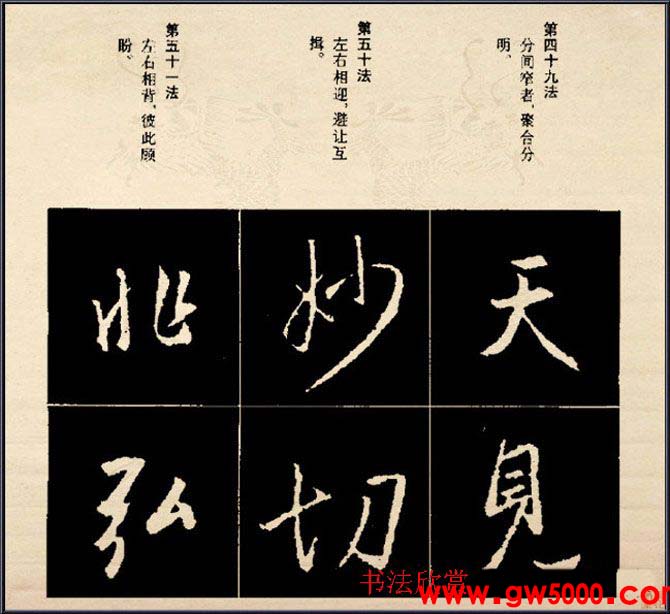 第四十九法
分间窄者，聚合分
明、
第五十法
左右相迎，避让互
揖。
第五十一法
左右相背，彼此顾
盼、
天
見
妙
切
兆
弘
书法欣赏
www.gw5000.com